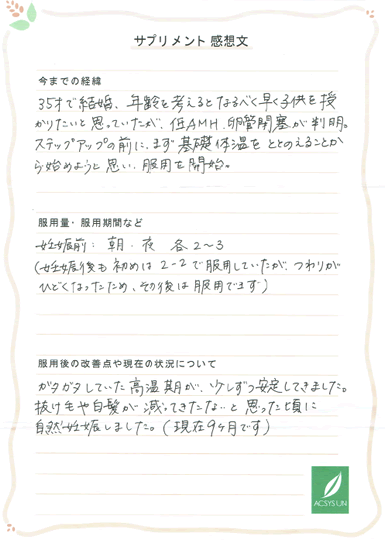 サプリメント 感想文
今までの経緯
35才で結婚、年齢を考えるとなるべく早く子供を授
かりたいと思っていたが、低AMH、卵管閉塞が判明。
ステップアップの前に、まず基礎体温をととのえることか
ら始めようと思い、服用を開始。
服用量・服用期間など
妊娠前：朝・夜 各2〜3
(妊娠後も初めは2-2で服用していたが、つわりが
ひどくなったため、その後は服用できず)
服用後の改善点や現在の状況について
ガタガタしていた高温期が、少しずつ安定してきました。
抜け毛や白髪が減ってきたな…と思った頃に
自然妊娠しました。(現在9ヶ月です)
ACSYSUN